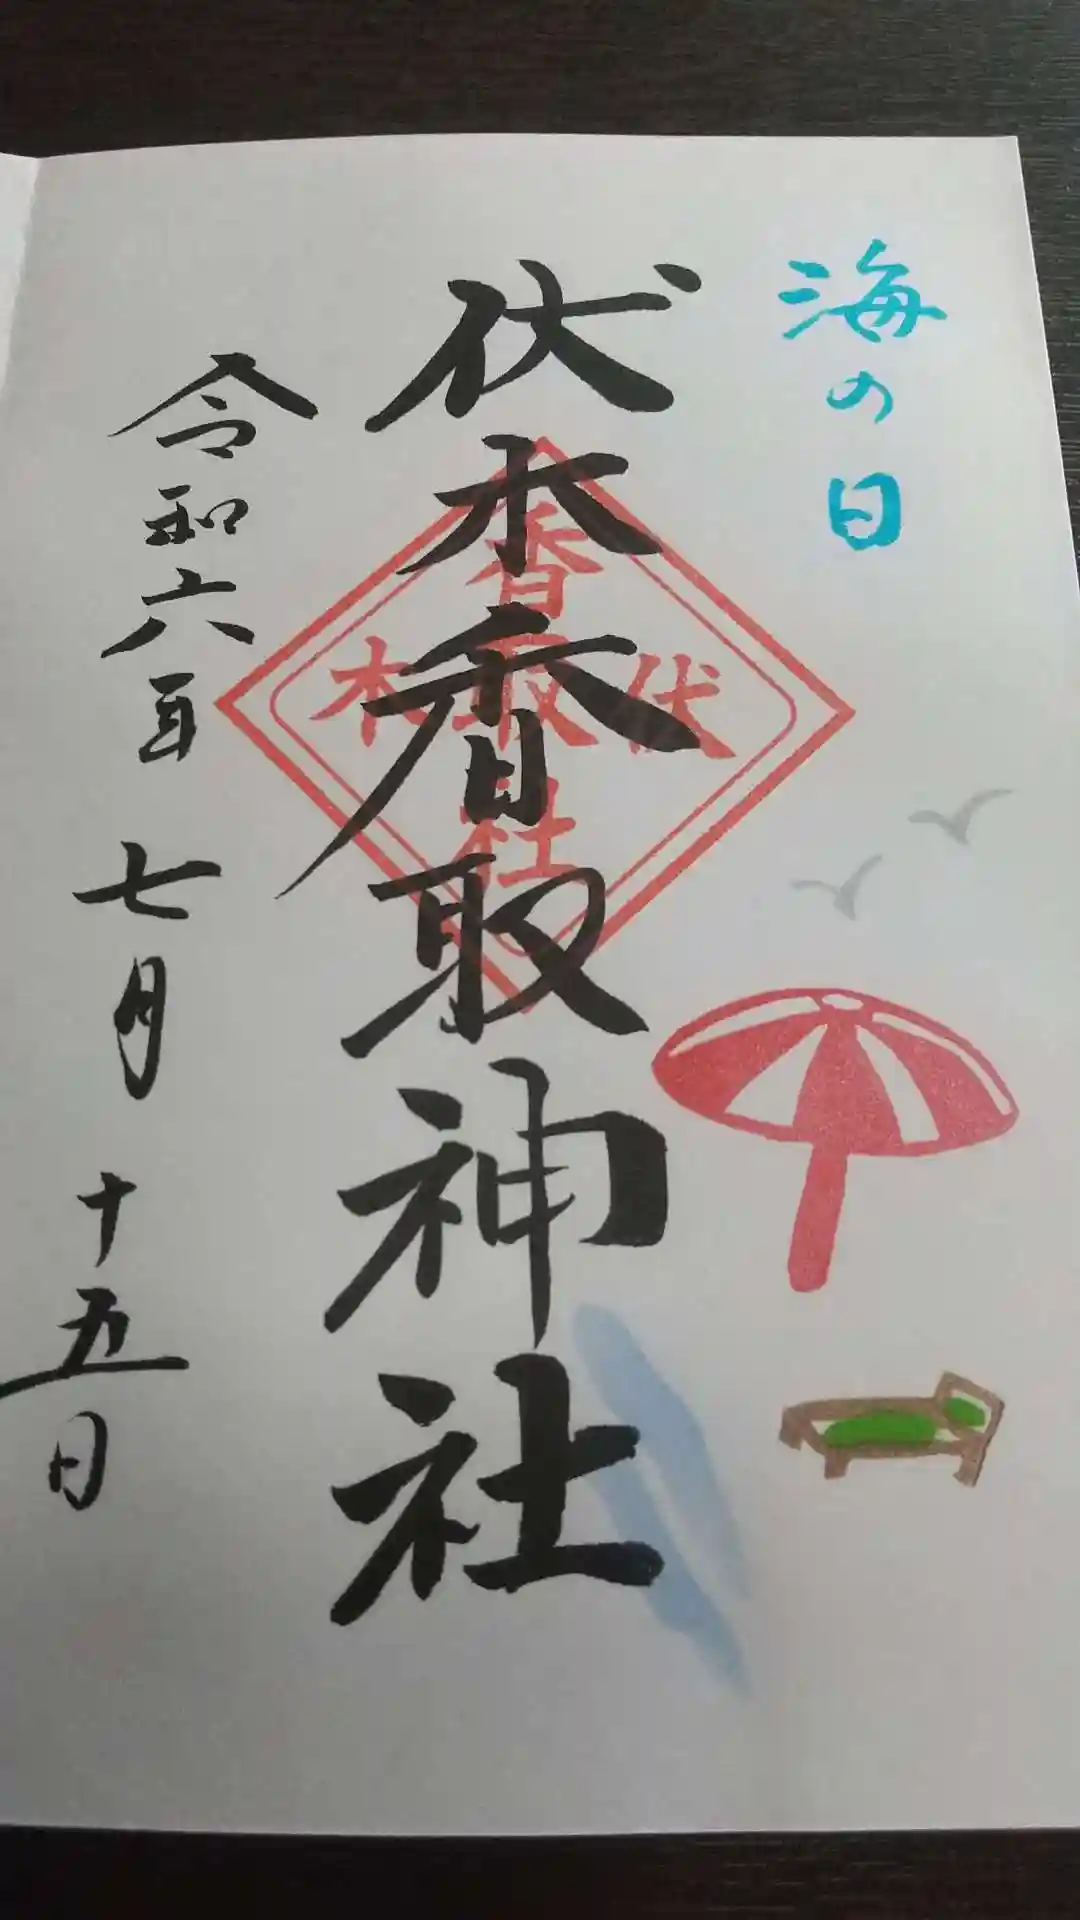 海の日
伏木香取神社
香取社
伏木
令和六年 七月 十五日